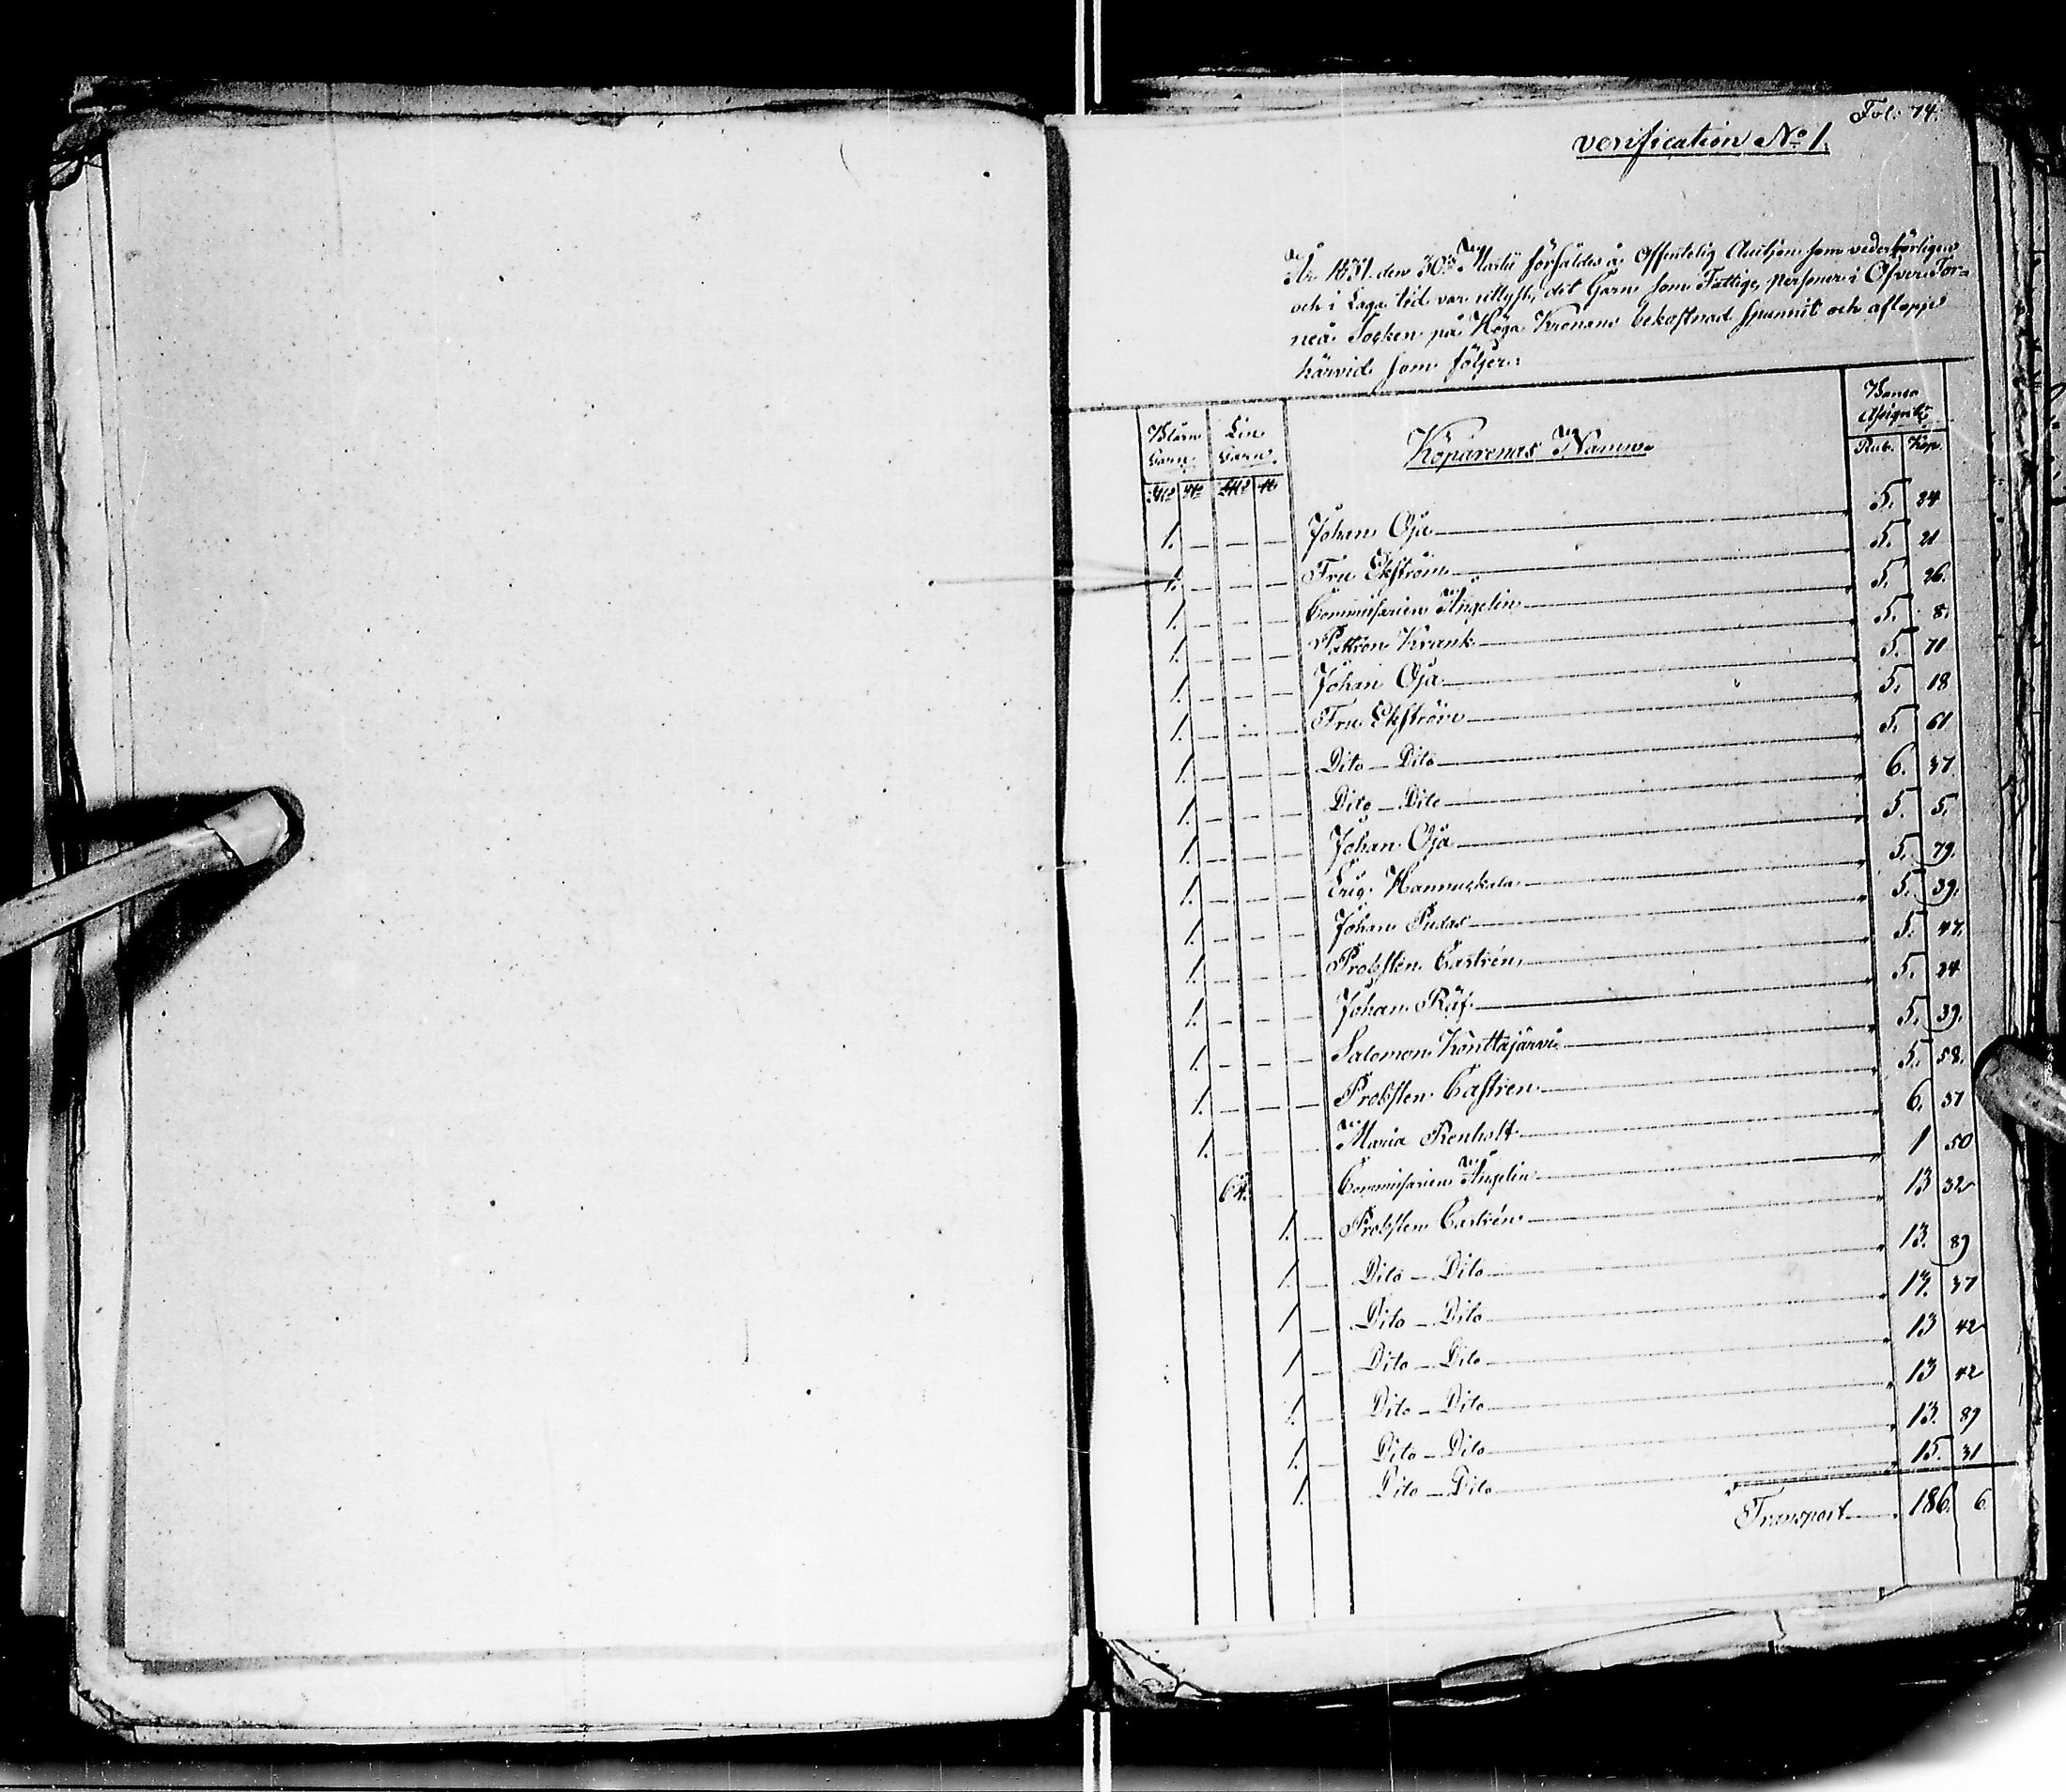 Fol: 74.
Verification No 1.
År 1831 den 30de Martii försåldes å Offentelig Auction som vederbörligen
och i Laga tid var utlyst, det Garn som Fattige personer i Öfver Tor=
neå Socken på Höga Kronans bekostnad spunnit och aflopp
härvid som följer:
Blårn Garn. Lin Garn. Köparenas Namn. Banco Assignat:r
Rub. Kop.
1. — — — Johan Oja 5. 24
1. — — — Fru Ekström 5. 21
1. — — — Commissarien Angelin 5. 26.
1. — — — Patron Krank 5. 8.
1. — — — Johan Oja 5. 70
1. — — — Fru Ekström 5. 18
1. — — — Dito — Dito 5. 61
1. — — — Dito — Dito 6. 37
1. — — — Johan Oja 5. 5.
1. — — — Eriq Hannukala 5. 79.
1. — — — Johan Pudas 5. 39.
1. — — — Probsten Castrén 5. 47.
1. — — — Johan Räf 5. 24
1. — — — Salomon Konttajärvi 5. 39.
1. — — — Probsten Castren 5. 58.
1. Maria Renholt 6. 37
64. Commissarien Angelin 1 50
1. — Probsten Castrén 13 32
1. — Dito — Dito 13. 89
1 — Dito — Dito 13. 37
1 — Dito — Dito 13 42
1. — Dito — Dito 13 42
1. — Dito — Dito 13. 89
1. Dito — Dito 15. 31
Transport 186. 6.